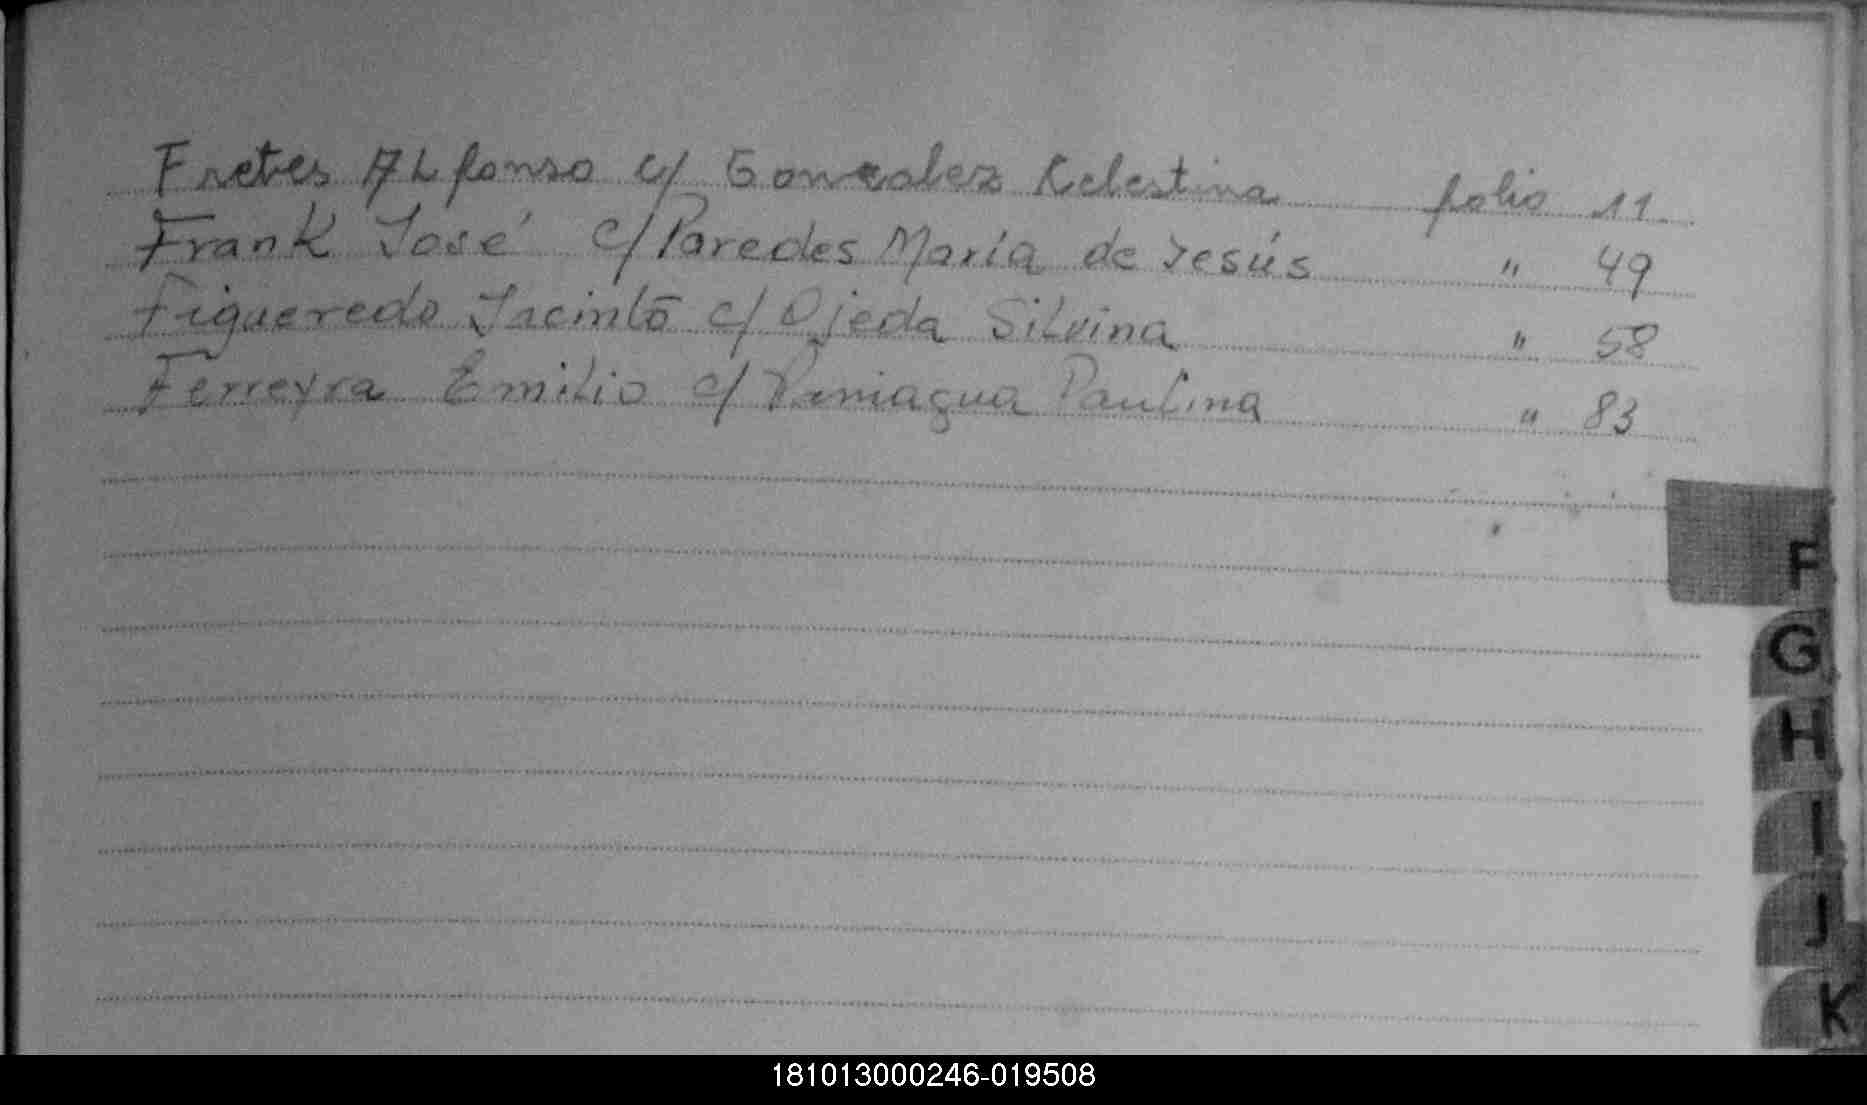 Fretes ALfonso c/ Gonzalez Kelestina folio 11
Frank José c/ Paredes María de Jesús " 49
Figueredo Jacinto c/ Ojeda Silvina " 58
Ferreyra Emilio c/ Paniagua Paulina " 83
F
G
H
I
J
K
181013000246-019508